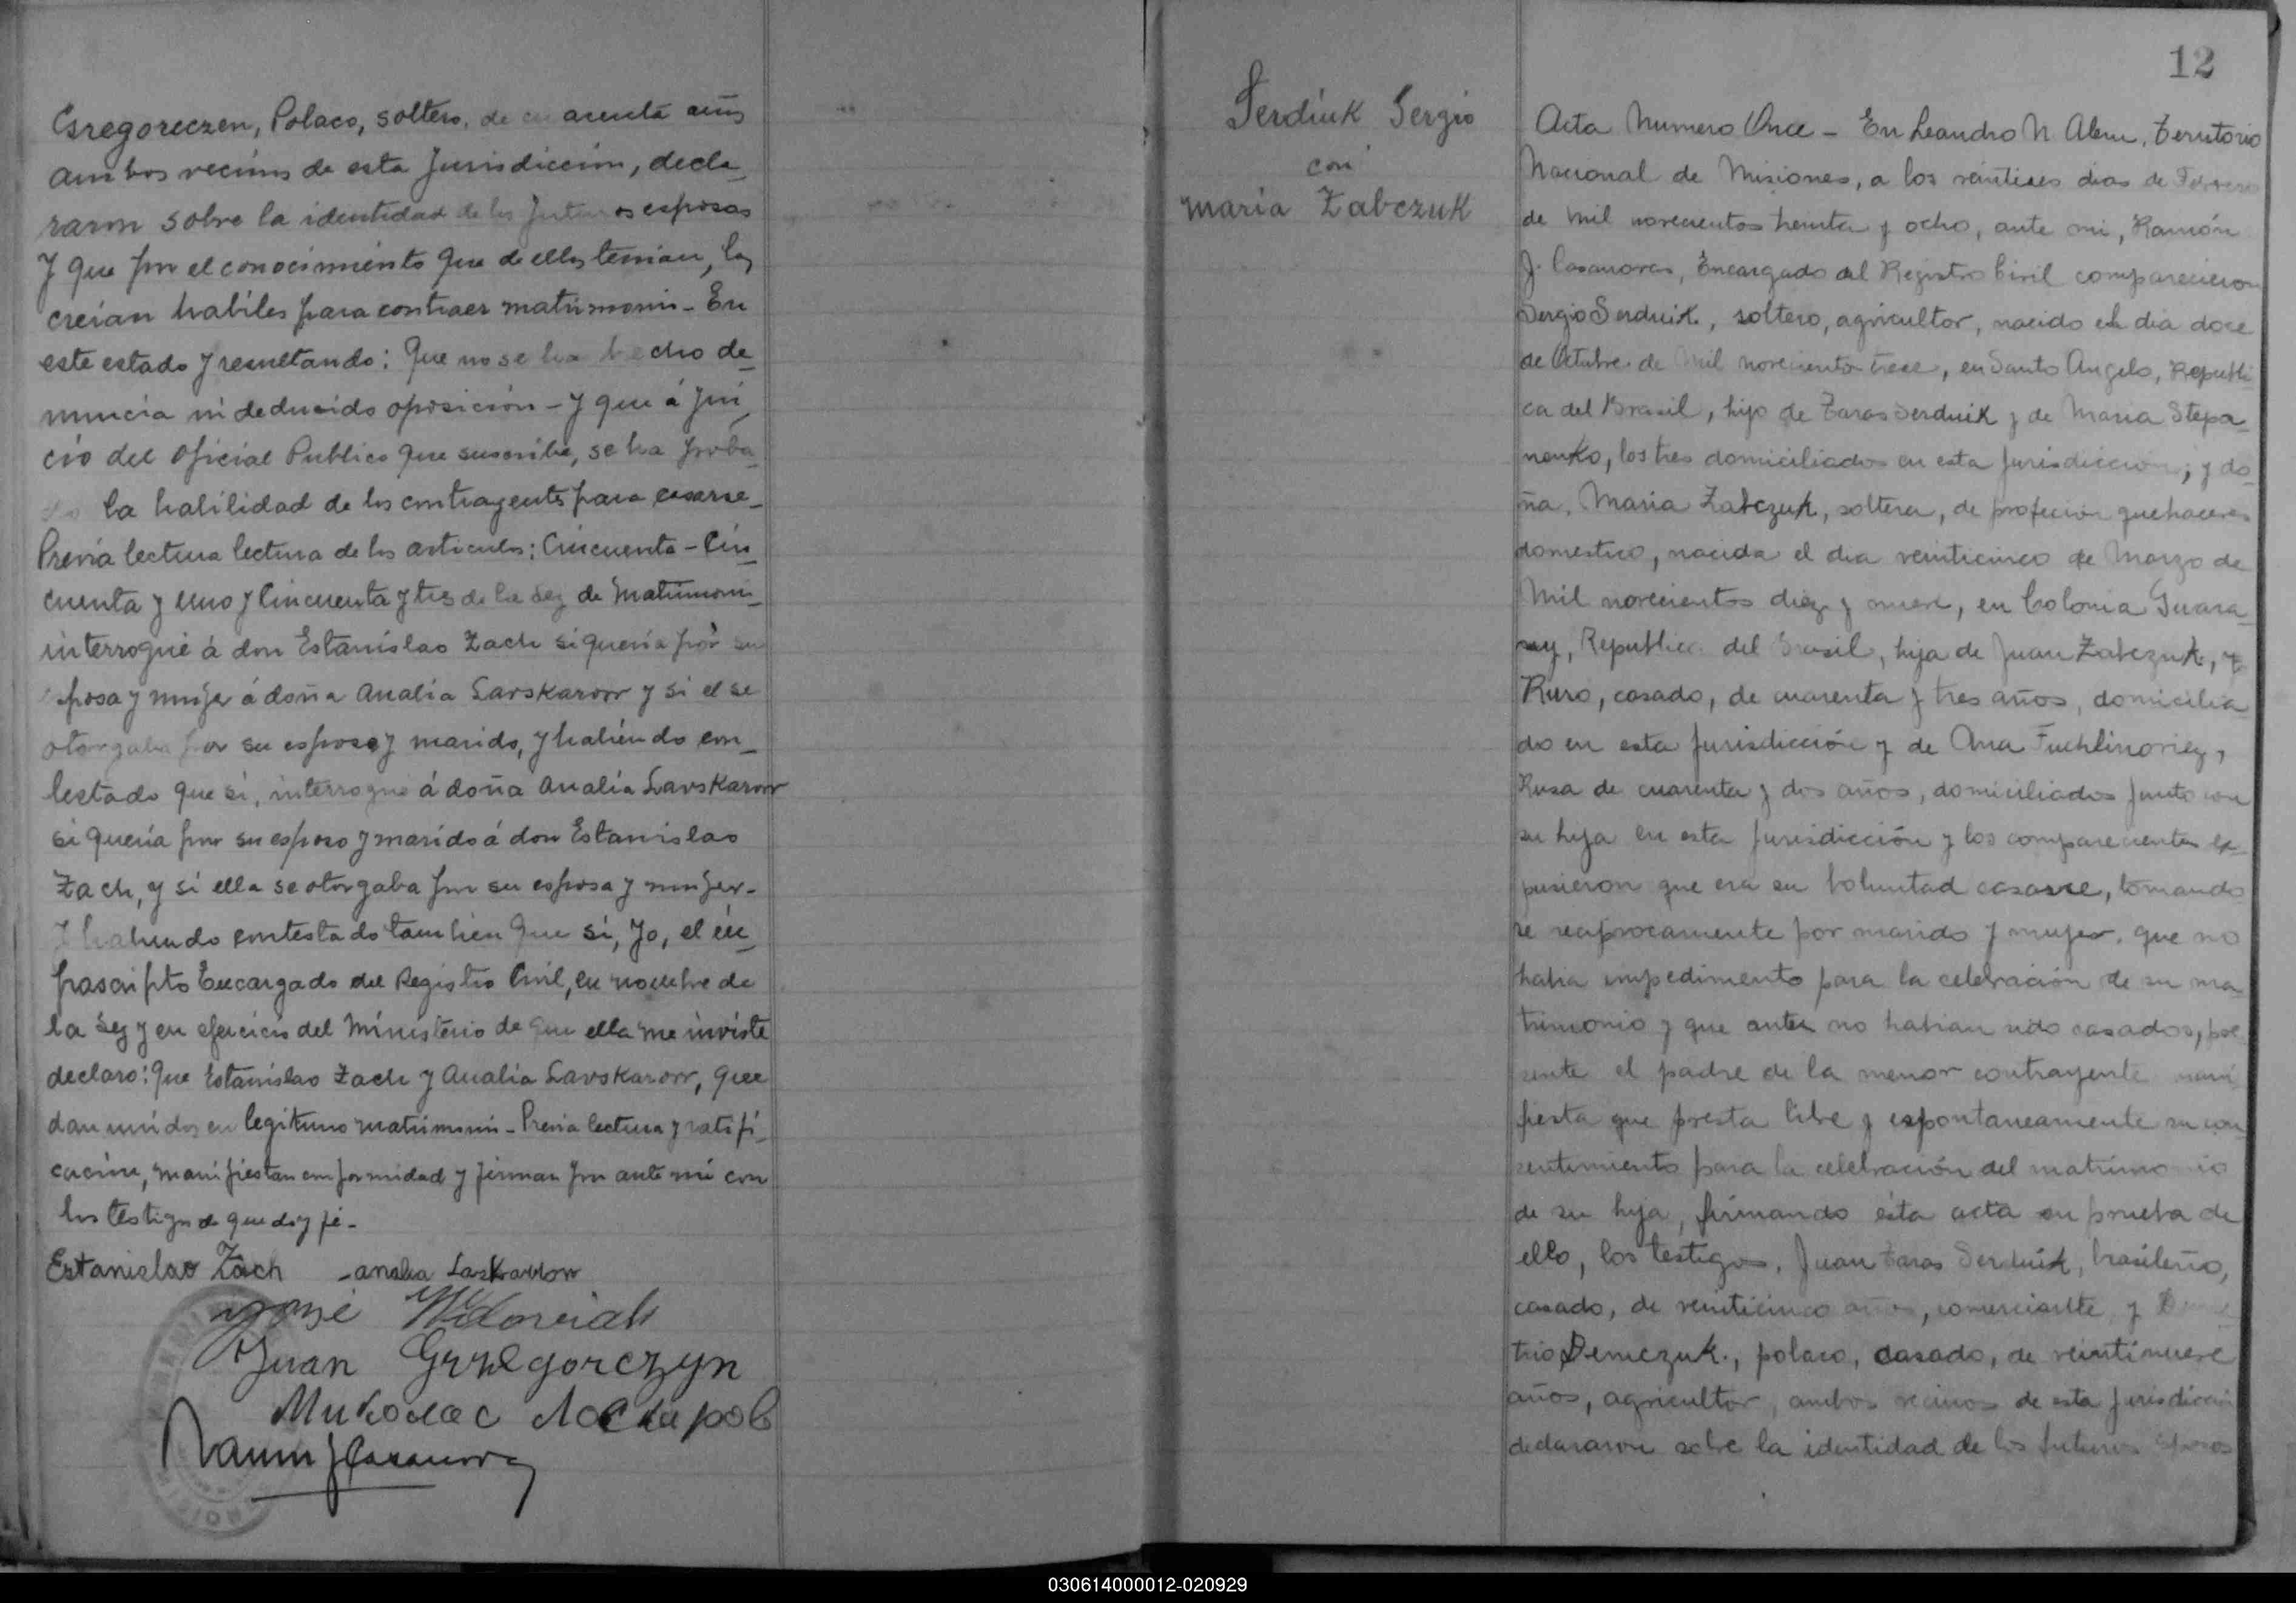 Gregoreczen, Polaco, soltero, de cuarenta años
ambos vecinos de esta Jurisdicción, decla_
raron sobre la identidad de los futuros esposos
y que por el conocimiento que de ellos tenian, los
creian habiles para contraer matrimonio - En
este estado y resultando: Que no se ha hecho de_
nuncia ni deducido oposición - y que á jui_
cio del Oficial Publico que suscribe, se ha proba_
do la habilidad de los contrayentes para casarse_
Previa lectura lectura de los articulos: Cincuenta - Cin_
cuenta y uno y Cincuenta y tres de la Ley de Matrimonio_
interrogué á don Estanislao Zach si queria por su
esposa y mujer á doña Analia Lavskarow y si el se
otorgaba por su esposo y marido, y habiendo con_
testado que si, interrogué á doña Analia Lavskarow
si queria por su esposo y marido á don Estanislao
Zach, y si ella se otorgaba por su esposa y mujer.
Y habiendo contestado tambien que si, Yo, el in_
frascripto Encargado del Registro Civil, en nombre de
la Ley y en ejercicio del Ministerio de que ella me inviste
declaro: Que Estanislao Zach y Analia Lavskarow, que
dan unidos en legitimo matrimonio - Previa lectura y ratifi_
cación, manifiestan conformidad y firman por ante mi con
los testigos de que doy fé -
Estanislao Zach - analia Laskawow
José
Juan Grzegorczyn
Миколас Ласкаров
Ramon J Casanova
Serdiuk Sergio
con
maria Zabczuk
12
Acta Numero Once - En Leandro N Alem, Territorio
Nacional de Misiones, a los veintiseis dias de Febrero
de mil novecientos treinta y ocho, ante mi, Ramón
J. Casanovas, Encargado del Registro Civil comparecieron
Sergio Serduik, soltero, agricultor, nacido el dia doce
de Octubre de mil novecientos trece, en Santo Angelo, Republi
ca del Brasil, hijo de Taras Serduik y de Maria Stepa_
nenko, los tres domiciliados en esta Jurisdicción; y do_
ña, Maria Zabczuk, soltera, de profecion quehaceres
domestico, nacida el dia veinticinco de Marzo de
Mil novecientos diez y nueve, en Colonia Guara_
ny, Republica del Brasil, hija de Juan Zabczuk,
Ruso, casado, de cuarenta y tres años, domicilia_
do en esta Jurisdicción y de Ana
Rusa de cuarenta y dos años, domiciliados junto con
su hija en esta Jurisdicción y los comparecientes ex_
pusieron que era su voluntad casarse, tomando
se reciprocamente por marido y mujer, que no
habia impedimento para la celebración de su ma_
trimonio y que antes no habian sido casados, pre_
sente el padre de la menor contrayente mani
fiesta que presta libre y espontaneamente su con_
sentimiento para la celebración del matrimonio
de su hija, firmando ésta acta en prueba de
ello, los testigos, Juan Taras Serduik, brasileño,
casado, de veinticinco años, comerciante y Deme_
trio Demczuk., polaco, casado, de veintinueve
años, agricultor, ambos vecinos de esta Jurisdicción
declararon sobre la identidad de los futuros esposos
030614000012-020929